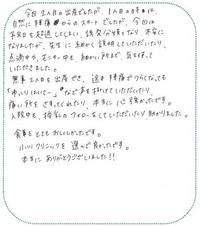 今回2人目の出産でしたが、1人目のときは、
自然に陣痛からのスタートでしたが、今回は
予定日を超過してしまい、誘発分娩となり、不安に
なりましたが、先生に細かく説明していただいたり、
点滴中や、モニター中も細かに所まで、気を使って
いただきました。
無事2人目を出産でき、途中陣痛でつらくなっても
「ゆっくりはいて〜」など声を掛けていただいたり、
痛い所をさすってくれたり、本当に心強かったです。
入院中も、授乳のフォローをしていただいたり助かりました。
食事もとてもおいしかったです。
小川クリニックを選んで良かったです。
本当にありがとうございました!!